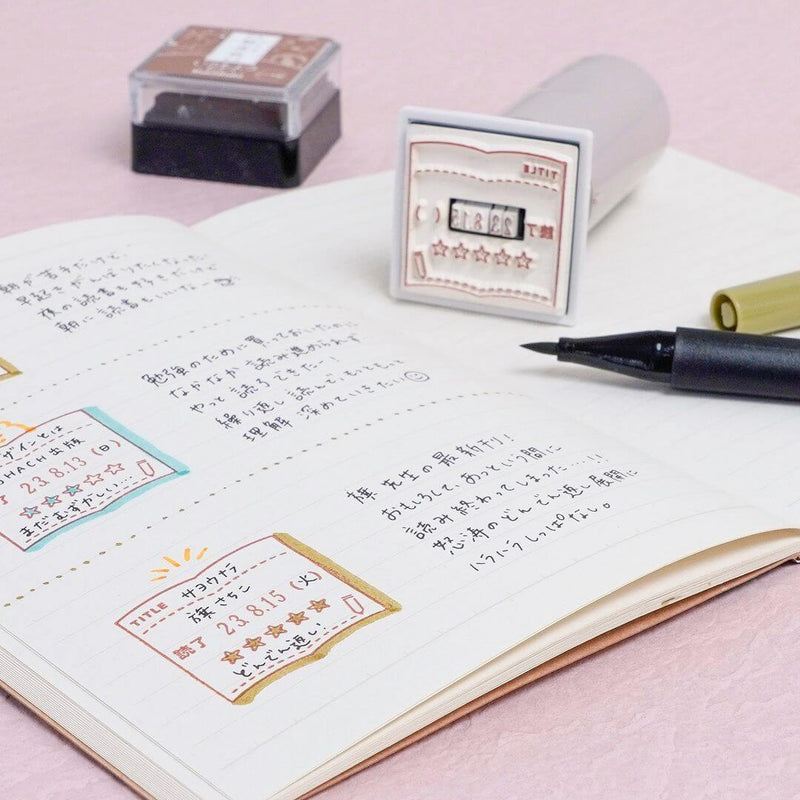 TITLE
23.8.15 読了
朝が苦手だけど、
早起きがんばりたくなった!
夜の読書も好きだけど
朝に読書もいいな〜
勉強のために買っておいた
なかなか読み進められず
やっと読了できたー!
繰り返し読んで
理解 深めていきたい!
ザインとは
HACH出版
了 23.8.13 (日)
まだむずかしい…
旗先生の最新刊!
おもしろくて、あっという間に
読み終わってしまった…!!
怒涛のどんでん返し展開に
ハラハラしっぱなし。
サヨウナラ
TITLE 旗さちこ
読了 23.8.15 (火)
どんでん返し!